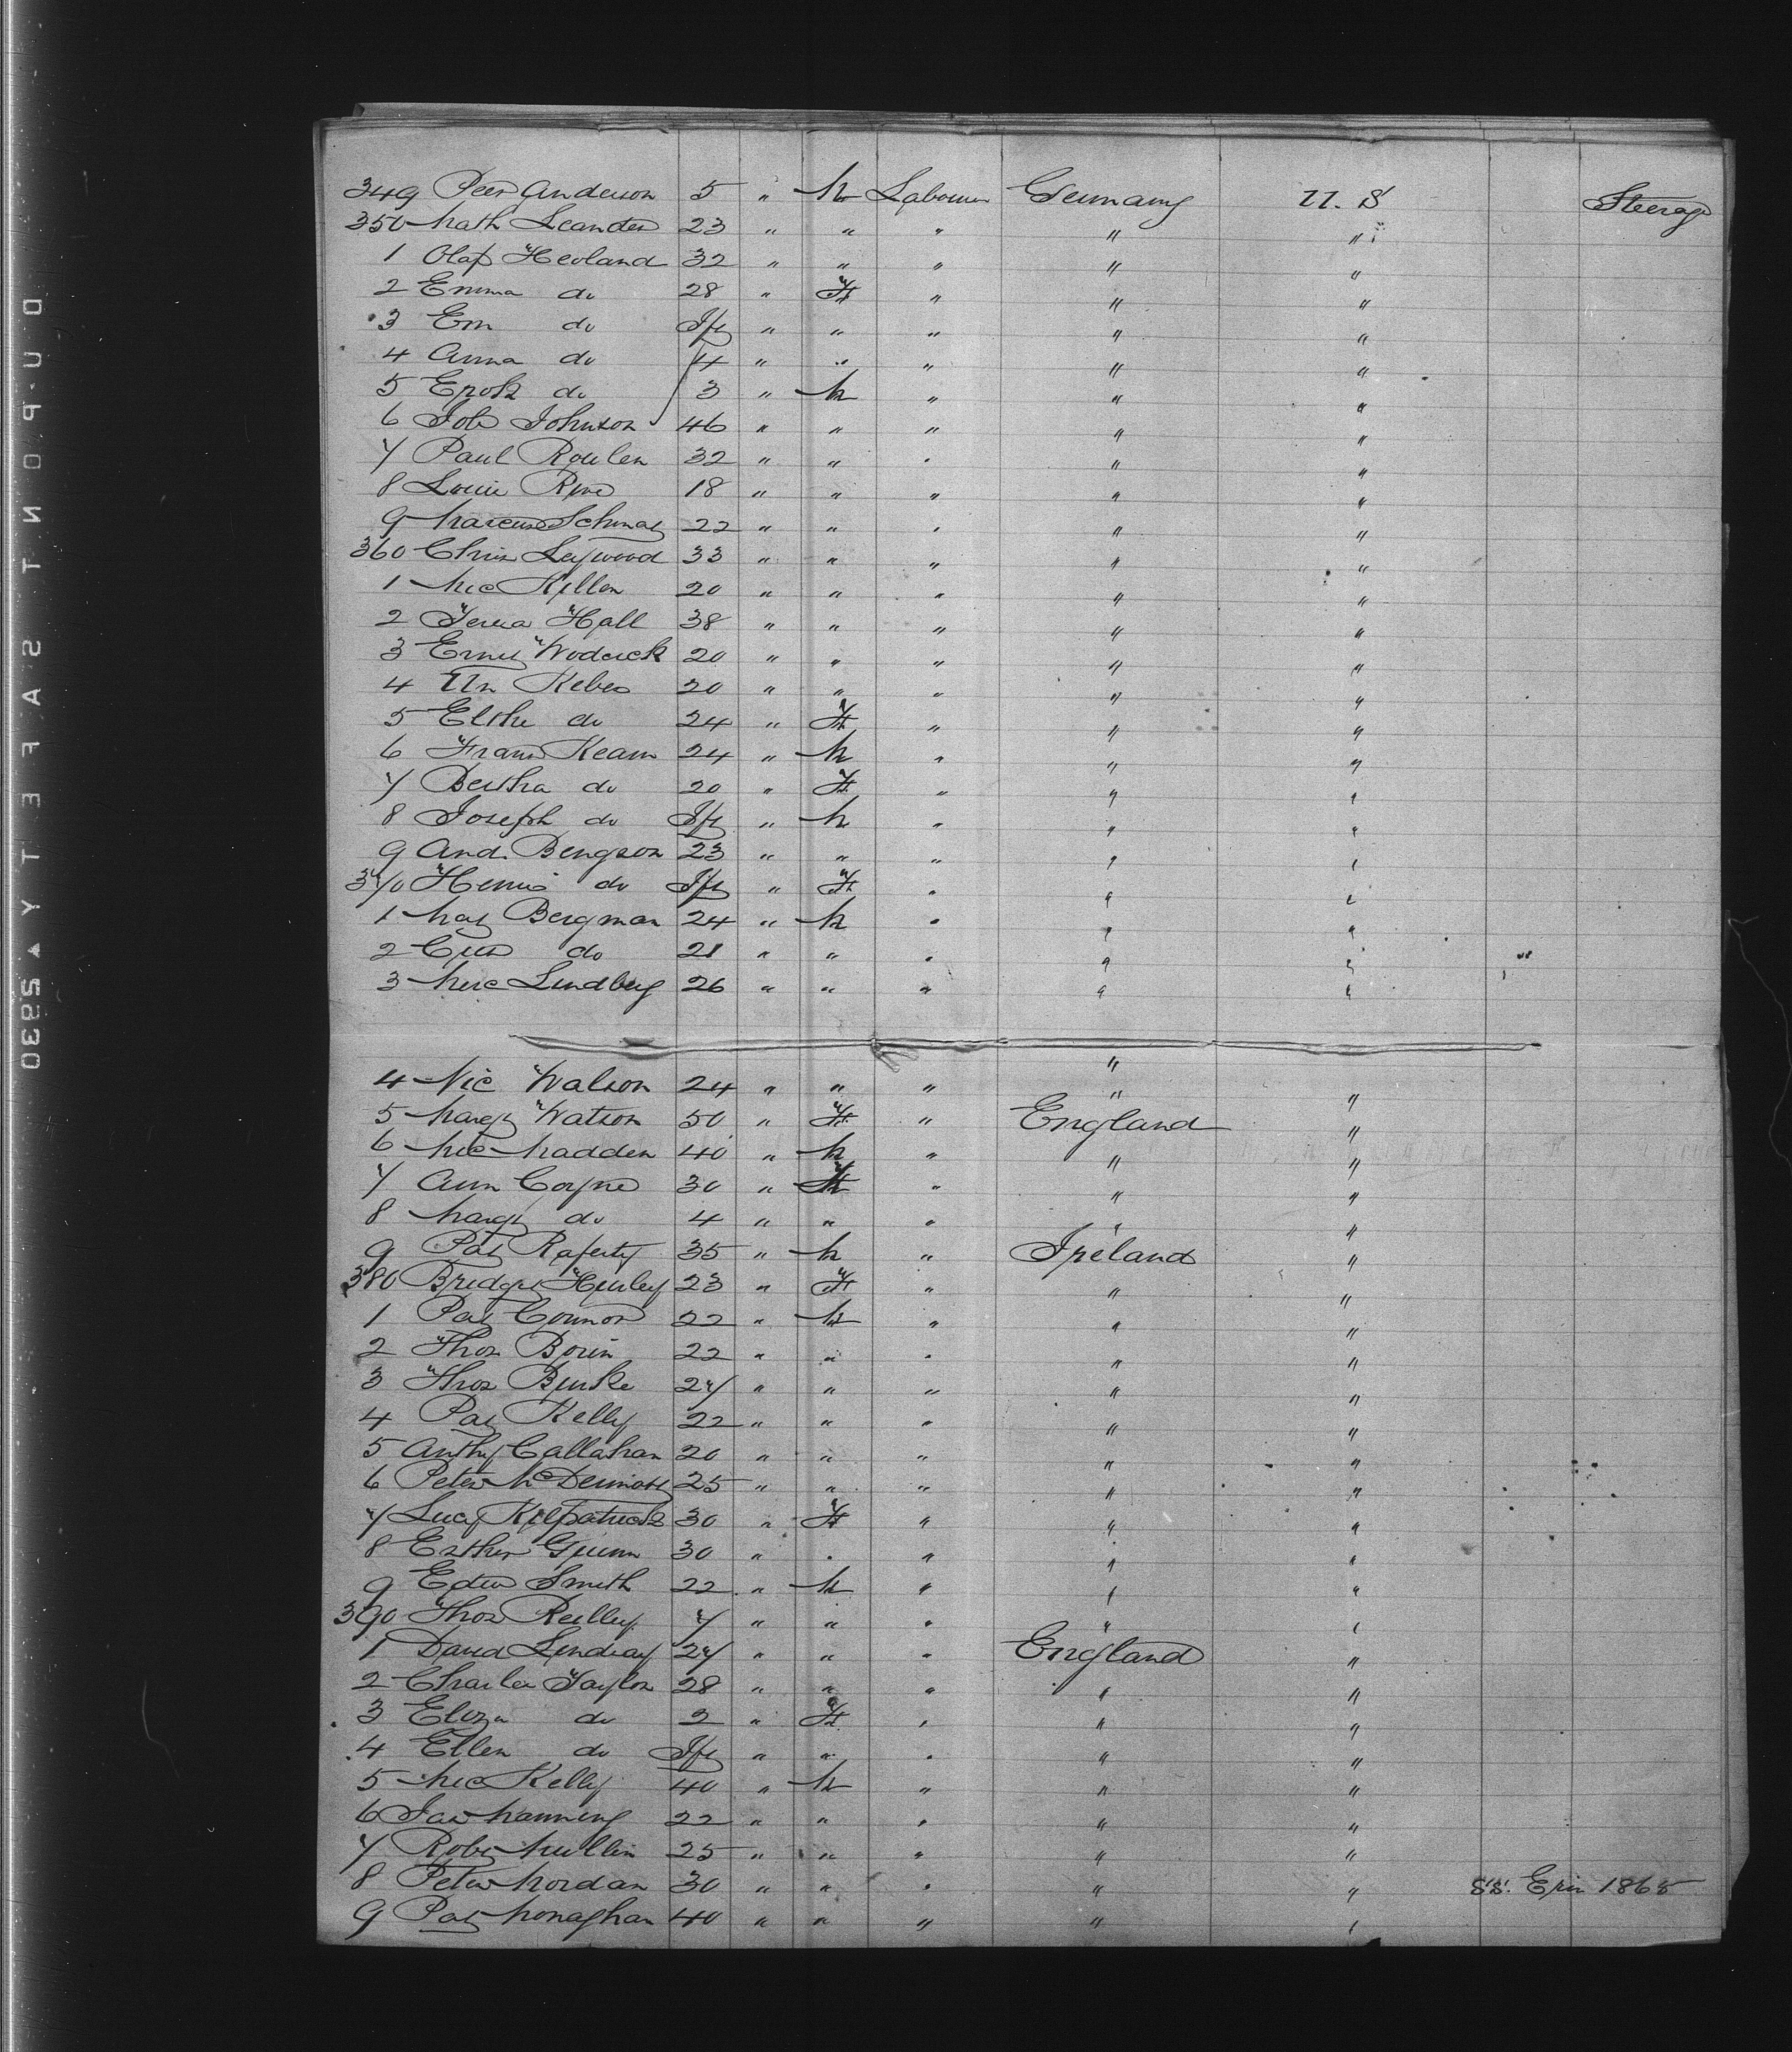 349 Peer Anderson 5 " M Labourer Germany U. S Steerage
350 Math Leander 23 " " " " "
1 Olaf Hevland 32 " " " " "
2 Emma do 28 " F " " "
3 Em do Inft " " " " "
4 Anna do 4 " " " " "
5 do 3 " M " " "
6 Job Johnson 46 " " " " "
7 Paul Roulen 32 " " " " "
8 Louis 18 " " " " "
9 Marcus 22 " " " " "
360 Chris Leywood 33 " " " " "
1 Mic Killen 20 " " " " "
2 Hall 38 " " " " "
3 Ernst Woderick 20 " " " " "
4 Keber 20 " " " " "
5 Elthe do 24 " F " " "
6 Frans Keam 24 " M " " "
7 Bertha do 20 " F " " "
8 Joseph do Inft " M " " "
9 And. Bengson 23 " " " " "
370 do Inft " F " " "
1 Bergman 24 " M " " "
2 do 21 " " " " "
3 Lindberg 26 " " " " "
"
4 Nic Walson 24 " " " " "
5 Margt Watson 50 " F " England "
6 Mic Madden 40 " M " " "
7 Ann Coyne 30 " F " " "
8 Margt do 4 " " " " "
9 Pat Raferty 35 " M " Ireland "
380 Bridget Hurley 23 " F " " "
1 Pat Connor 22 " M " " "
2 Thos Borin 22 " " " " "
3 Thos Burke 27 " " " " "
4 Pat Kelly 22 " " " " "
5 Anthy Callahan 20 " " " " "
6 Peter McDermott 25 " " " " "
7 Lucy Kilpatrick 30 " F " " "
8 Esther Guinn 30 " " " " "
9 Edw Smith 22 " M " " "
390 Thos Reilley 7 " " " " "
1 David Lindsay 27 " " " England "
2 Charles Taylor 28 " " " " "
3 Eliza do 2 " F " " "
4 Ellen do Inft " " " " "
5 Mic Kelly 40 " M " " "
6 Jas Manning 22 " " " " "
7 Robt Mullin 25 " " " " "
8 Peter Mordan 30 " " " " " S.S. Erin 1865
9 Pat Monaghan 40 " " " " "
DUPONT SAFETY ▲ 52930